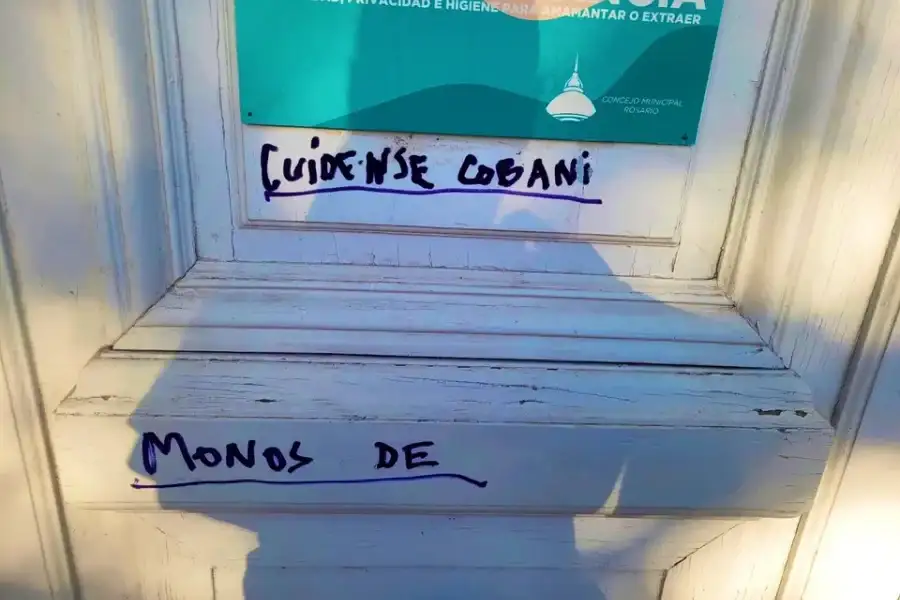 PRIVACIDAD E HIGIENE PARA AMAMANTAR O EXTRAER
CONCEJO MUNICIPAL
ROSARIO
CUIDENSE COBANI
MONOS DE